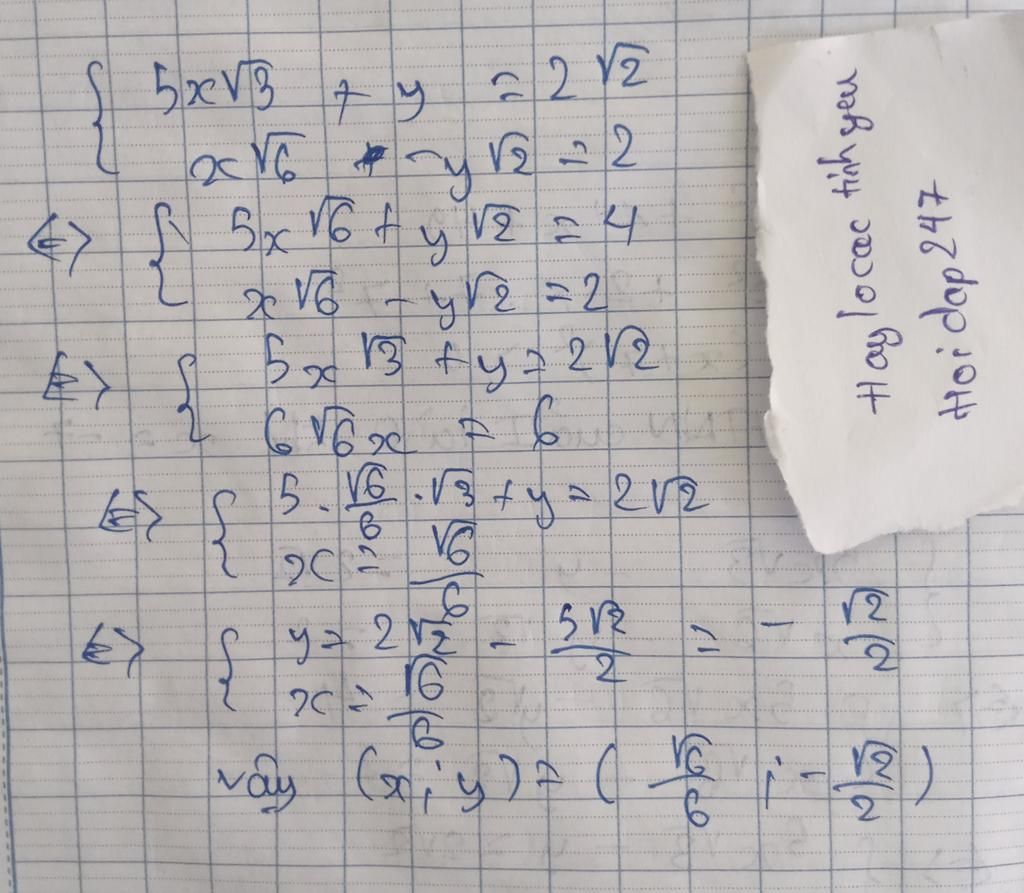 { 5x√3 + y = 2√2
x√6 - y√2 = 2
<=> { 5x√6 + y√2 = 4
x√6 - y√2 = 2
<=> { 5x√3 + y = 2√2
6√6x = 6
<=> { 5 . √6/6 . √3 + y = 2√2
x = √6/6
<=> { y = 2√2 - 5√2/2 = - √2/2
x = √6/6
vậy (x; y) = (√6/6 ; - √2/2)
Hay locac tinh yeu
Hoi dap 247